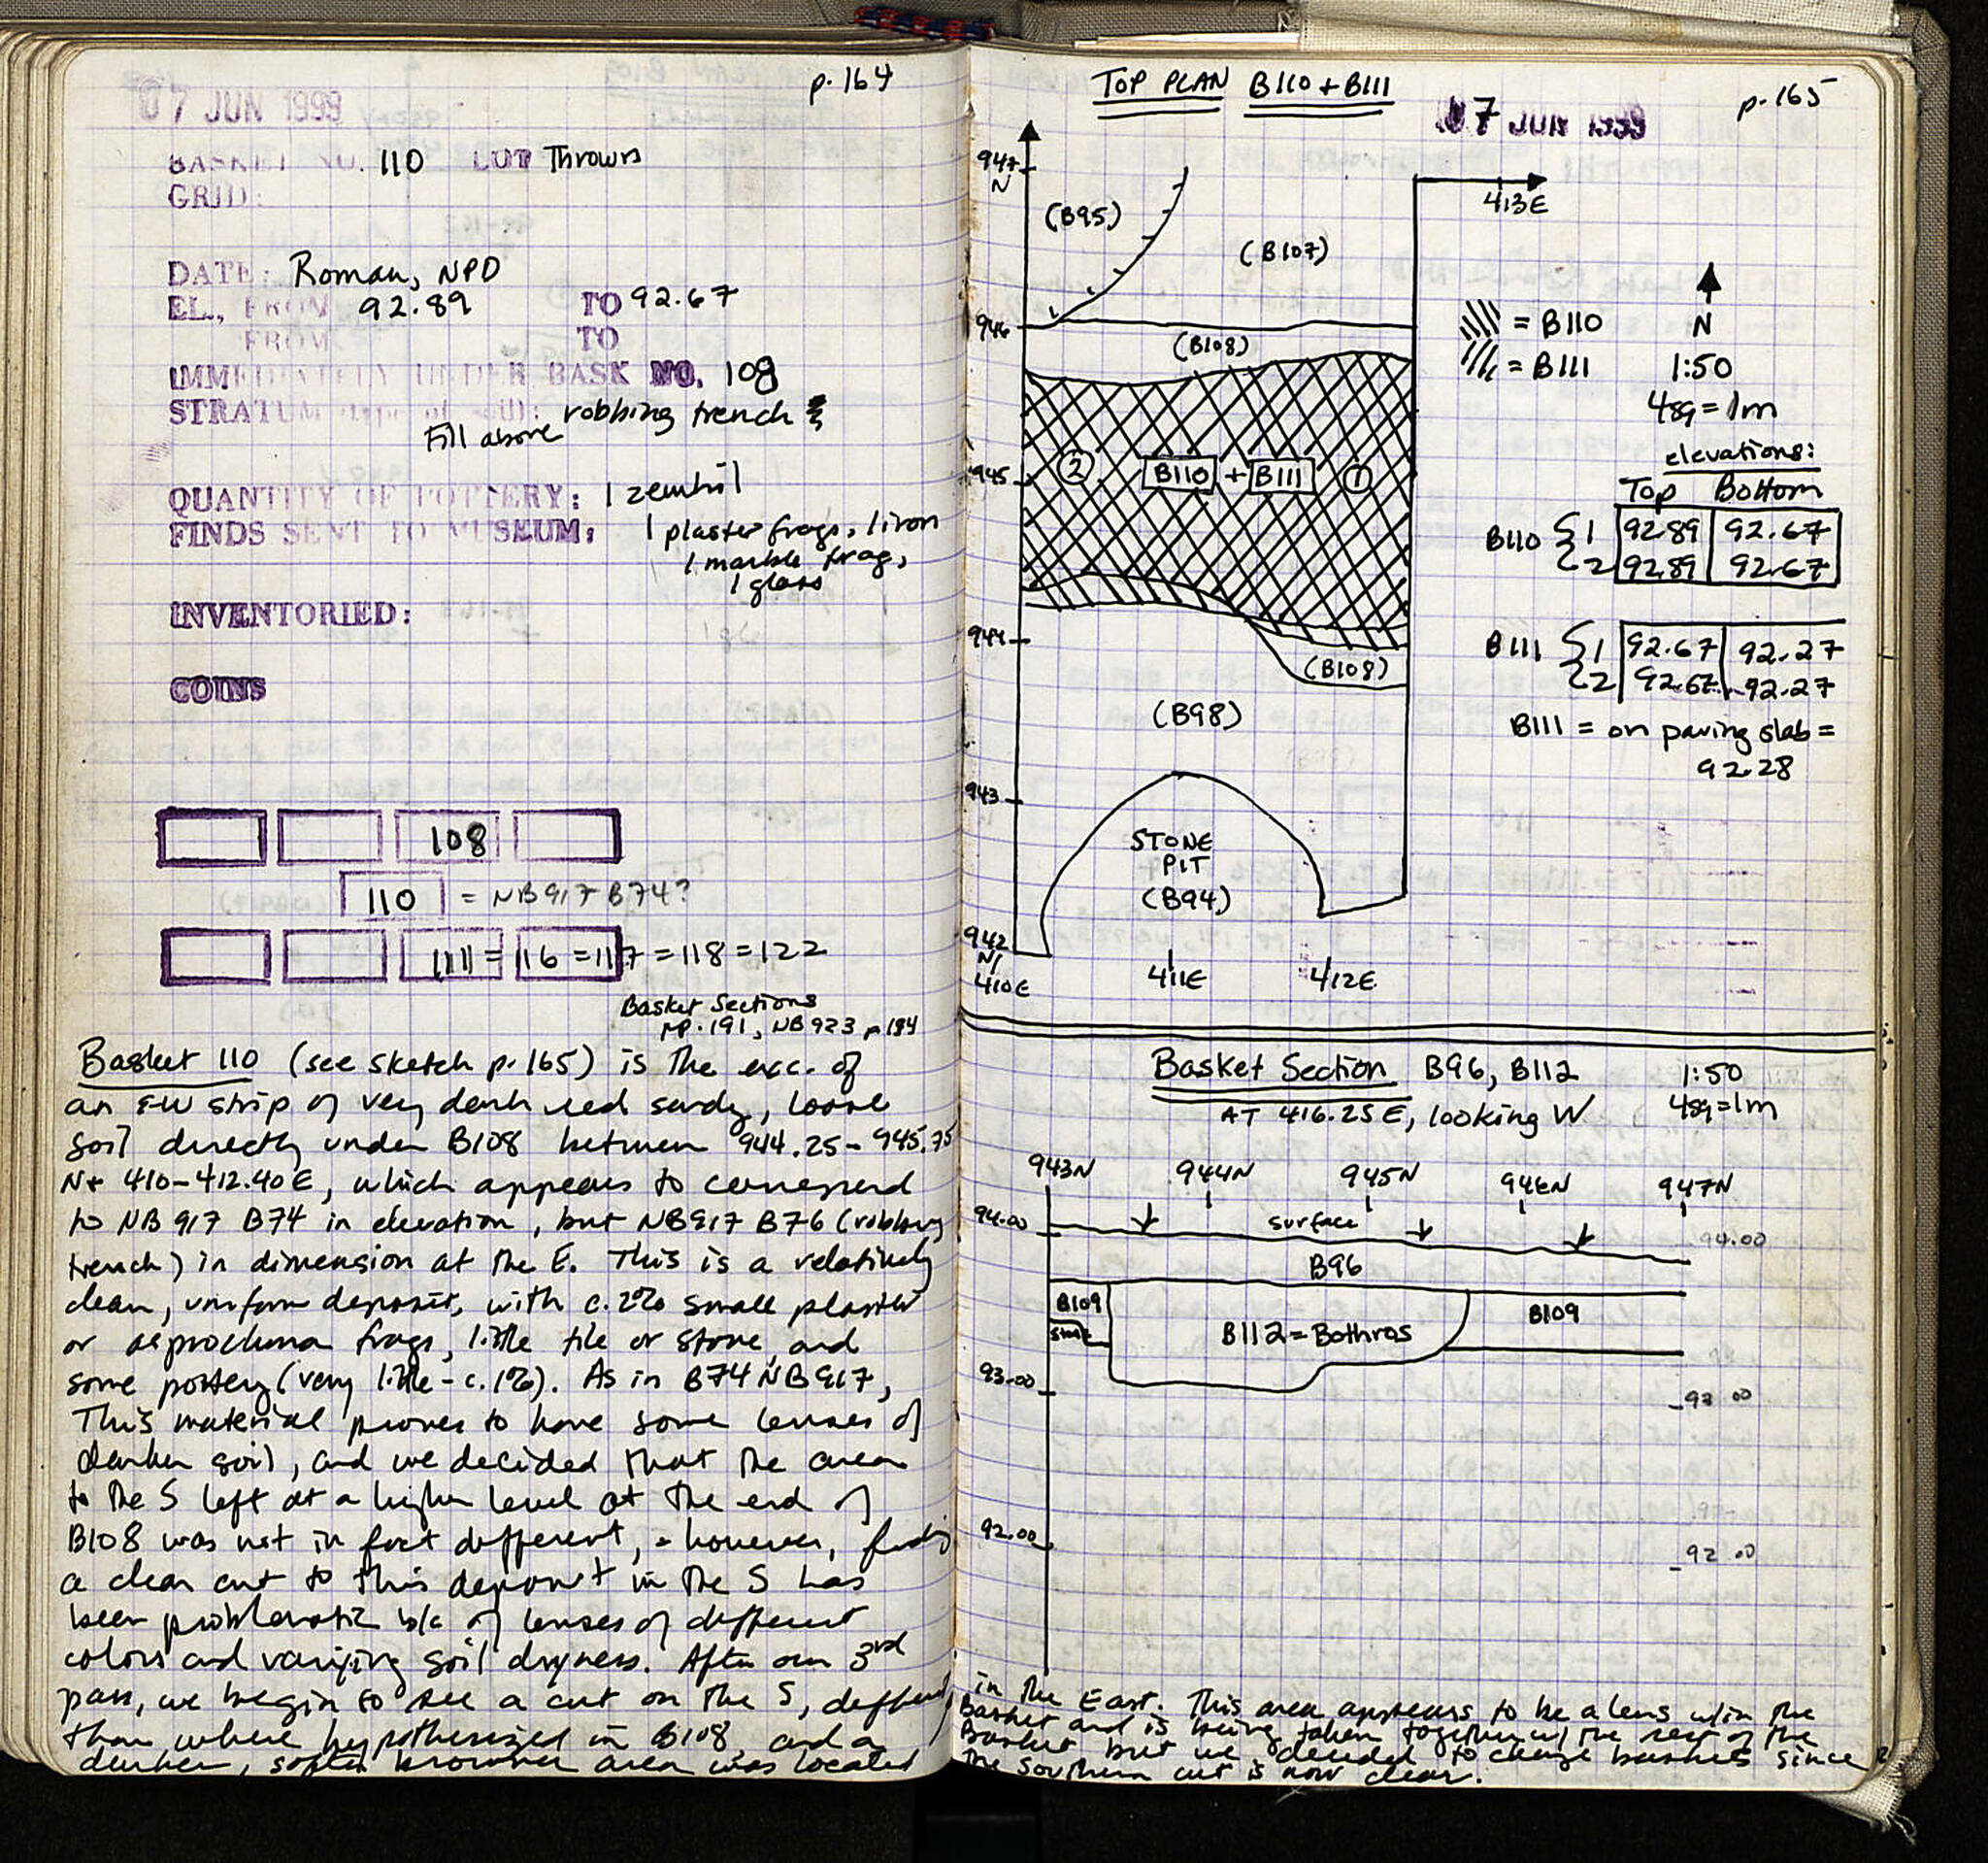 p. 164
07 JUN 1999
BASKET NO. 110 LOT Thrown
GRID:
DATE: Roman, NPD
EL., FROM 92.89 TO 92.67
FROM TO
IMMEDIATELY UNDER BASK NO. 108
STRATUM (type of soil): robbing trench
Fill above
QUANTITY OF POTTERY: 1 zembil
FINDS SENT TO MUSEUM: 1 plaster frags, 1 iron
1 marble frag,
1 glass
INVENTORIED:
COINS
108
110 = NB917 B74?
111 = 116 = 117 = 118 = 122
Basket Sections
pp. 191, NB923 p 184
Basket 110 (see sketch p. 165) is the exc. of
an EW strip of very dark red sandy, loose
soil directly under B108 between 944.25-945.75
N + 410-412.40E, which appears to correspond
to NB917 B74 in elevation, but NB917 B76 (robbing
trench) in dimension at the E. This is a relatively
clean, uniform deposit, with c. 2% small plaster
or asprochoma frags, little tile or stone, and
some pottery (very little - c. 1%). As in B74 NB917,
This material proves to have some lenses of
darker soil, and we decided that the area
to the S left at a higher level at the end of
B108 was not in fact different, however, finding
a clear cut to this deposit in the S has
been problematic b/c of lenses of different
colors and varying soil dryness. After our 3rd
pass, we begin to see a cut on the S, different
than where hypothesized in B108 and a
darker, softer browner area was located
TOP PLAN B110 + B111
07 JUN 1999
p. 165
947
N
413E
(B95)
(B107)
946
(B108)
= B110
= B111
N
1:50
4sq = 1m
945
2
B110 + B111
1
elevations:
Top Bottom
B110 1 92.89 92.67
2 92.89 92.67
944
(B108)
B111 1 92.67 92.27
2 92.67 92.27
(B98)
B111 = on paving slab =
92.28
943
STONE
PIT
(B94)
942
N
410E 411E 412E
Basket Section B96, B112
AT 416.25E, looking W
1:50
4sq = 1m
943N 944N 945N 946N 947N
94.00 surface 94.00
B96
B109 B112 = Bothros B109
93.00 93.00
92.00 92.00
in the East. This area appears to be a lens w/in the
Basket and is being taken together w/ the rest of the
Basket but we decided to change baskets since
the southern cut is now clear.